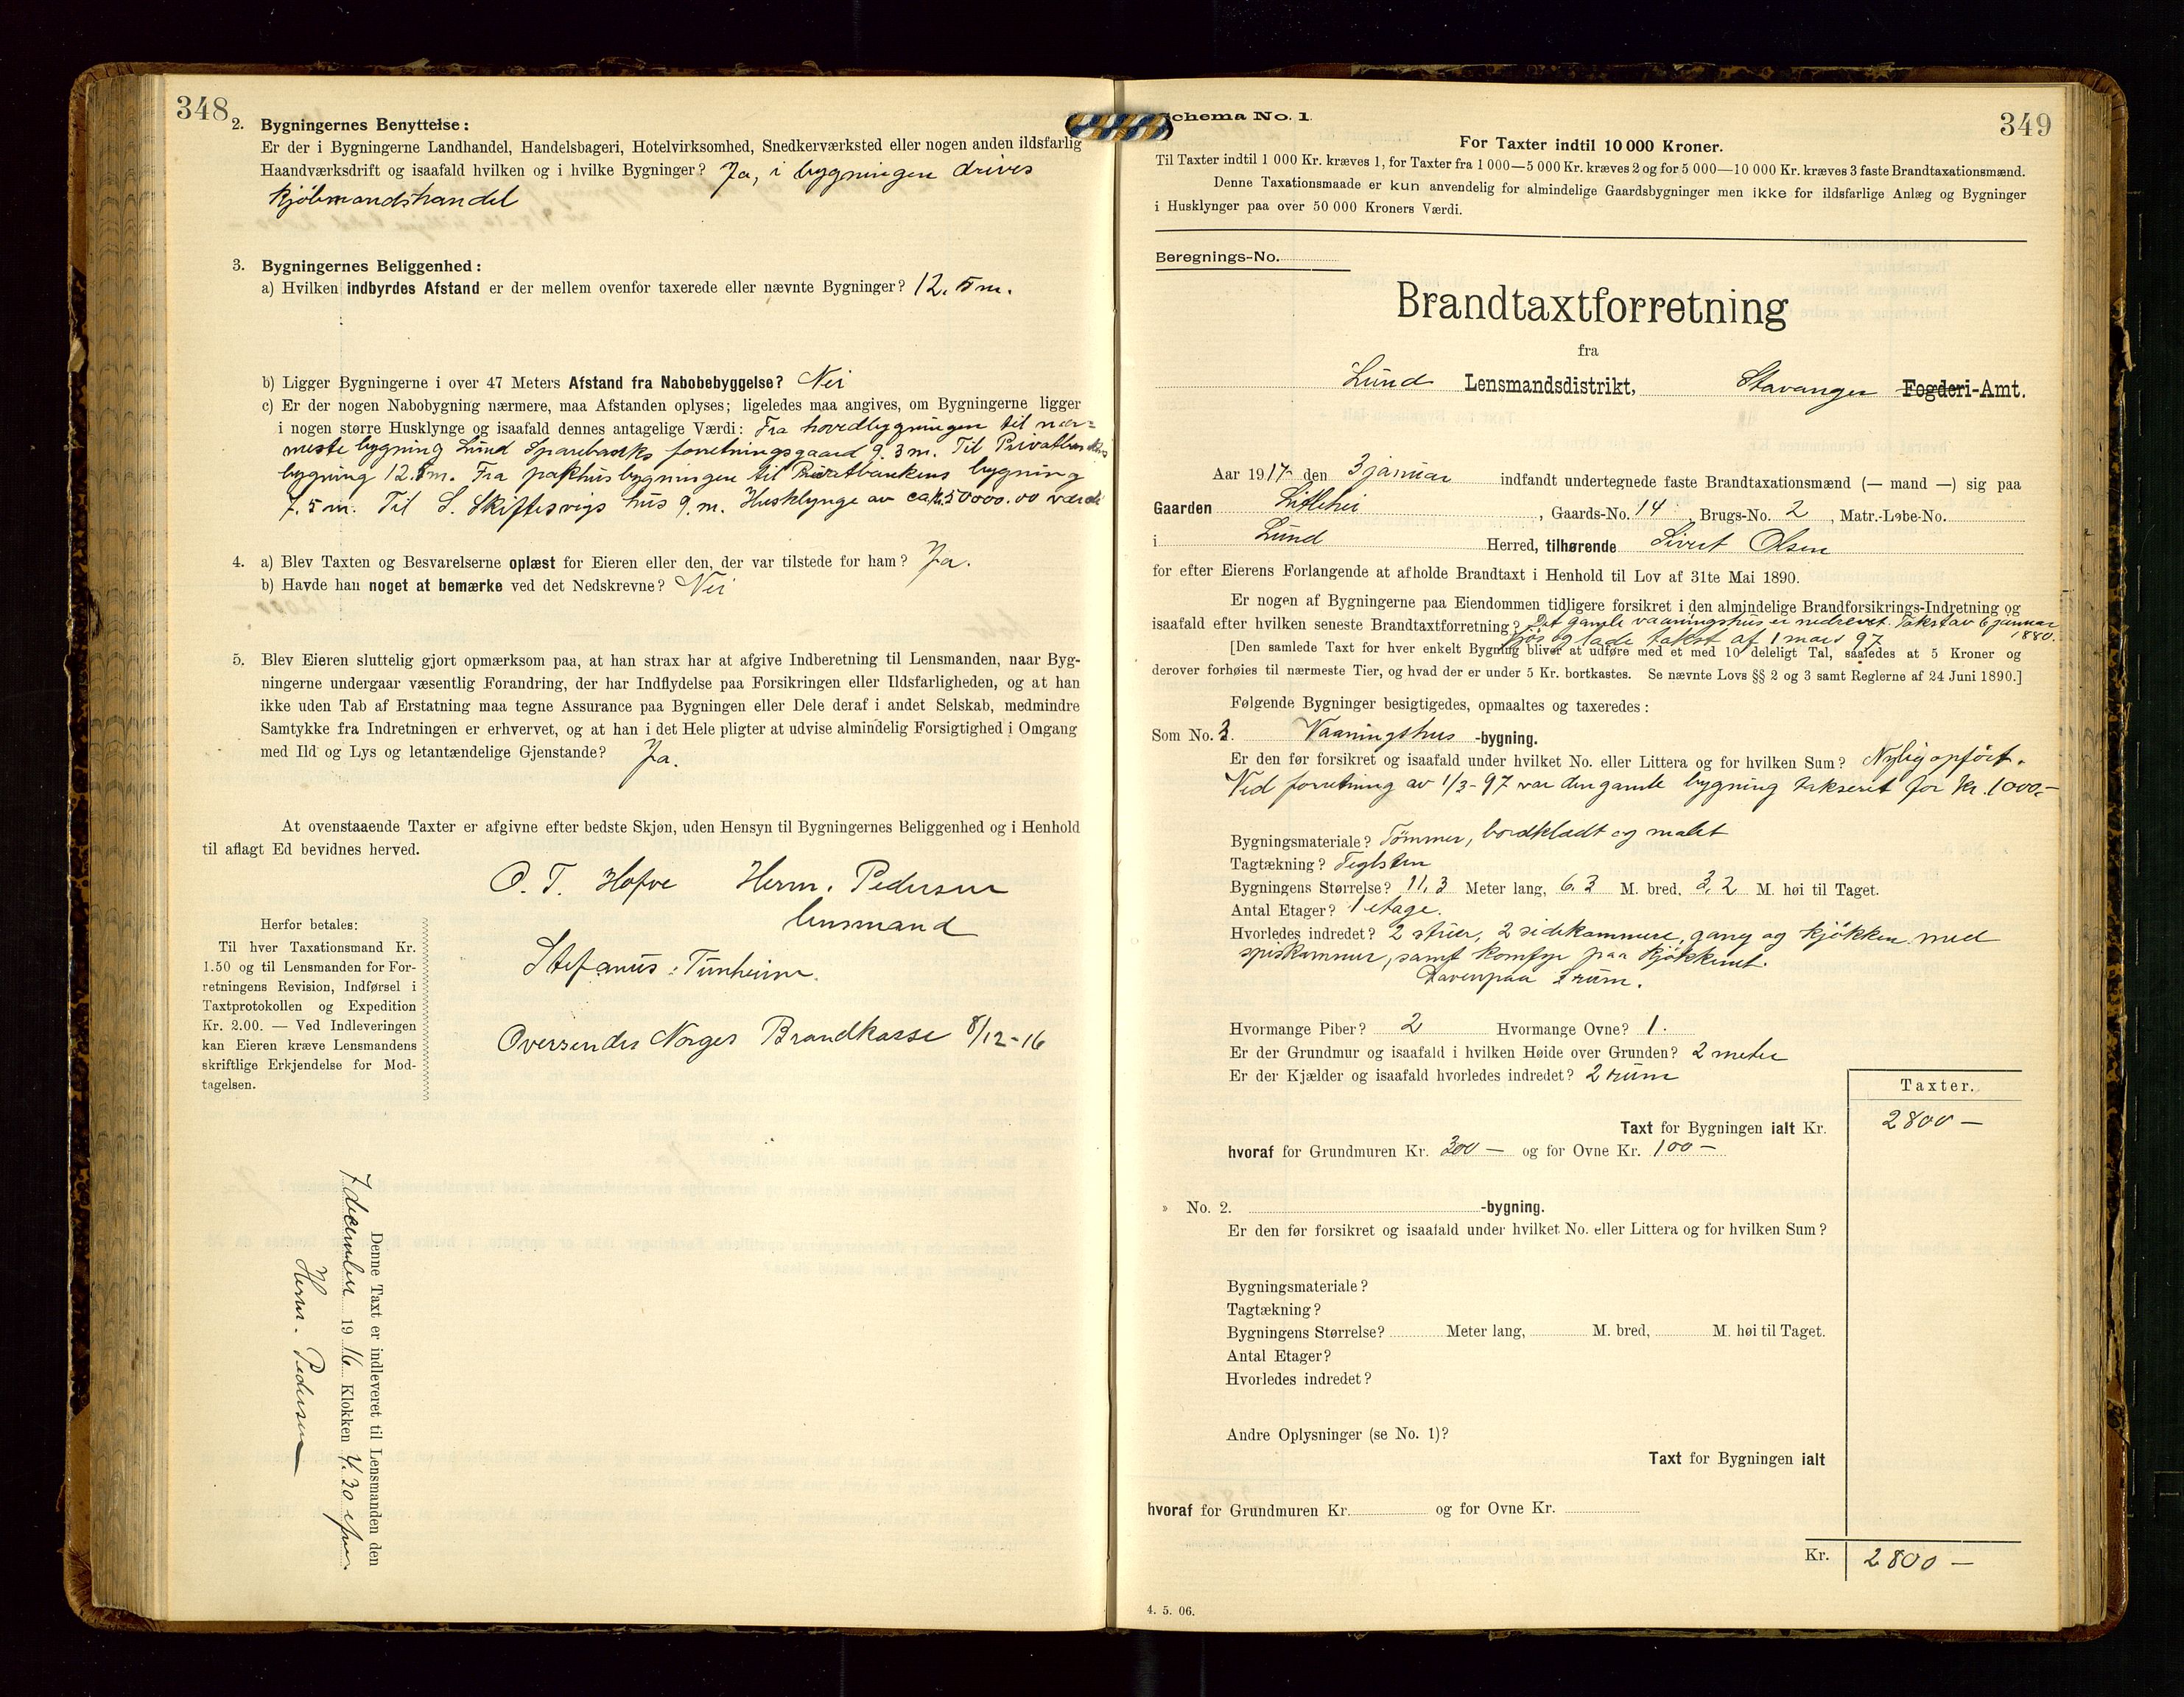 348
2. Bygningernes Benyttelse:
Er der i Bygningerne Landhandel, Handelsbageri, Hotelvirksomhed, Snedkerværksted eller nogen anden ildsfarlig
Haandværksdrift og isaafald hvilken og i hvilke Bygninger? Ja, i bygningen drives
kjøbmandshandel
3. Bygningernes Beliggenhed:
a) Hvilken indbyrdes Afstand er der mellem ovenfor taxerede eller nævnte Bygninger? 12.5 m.
b) Ligger Bygningerne i over 47 Meters Afstand fra Nabobebyggelse? Nei
c) Er der nogen Nabobygning nærmere, maa Afstanden oplyses; ligeledes maa angives, om Bygningerne ligger
i nogen større Husklynge og isaafald dennes antagelige Værdi: Fra hovedbygningen til nær-
meste bygning Lund Sparebanks forretningsgaard 9.3 m. Til Privatbankens
bygning 12.5 m. Fra pakhusbygningen til Privatbankens bygning
7.5 m. Til S. Skiftesvigs hus 9. m. Husklynge av ca kr. 50000.00 værdi
4. a) Blev Taxten og Besvarelserne oplæst for Eieren eller den, der var tilstede for ham? Ja.
b) Havde han noget at bemærke ved det Nedskrevne? Nei
5. Blev Eieren sluttelig gjort opmærksom paa, at han strax har at afgive Indberetning til Lensmanden, naar Byg-
ningerne undergaar væsentlig Forandring, der har Indflydelse paa Forsikringen eller Ildsfarligheden, og at han
ikke uden Tab af Erstatning maa tegne Assurance paa Bygningen eller Dele deraf i andet Selskab, medmindre
Samtykke fra Indretningen er erhvervet, og at han i det Hele pligter at udvise almindelig Forsigtighed i Omgang
med Ild og Lys og letantændelige Gjenstande? Ja.
At ovenstaaende Taxter er afgivne efter bedste Skjøn, uden Hensyn til Bygningernes Beliggenhed og i Henhold
til aflagt Ed bevidnes herved.
O. T. Hofve Herm. Pedersen
lensmand
Stefanus Tunheim.
Oversendes Norges Brandkasse 8/12-16
Herfor betales:
Til hver Taxationsmand Kr.
1.50 og til Lensmanden for For-
retningens Revision, Indførsel i
Taxtprotokollen og Expedition
Kr. 2.00. — Ved Indleveringen
kan Eieren kræve Lensmandens
skriftlige Erkjendelse for Mod-
tagelsen.
Denne Taxt er indleveret til Lensmanden den
7 december 1916 Klokken 4.30 efm.
Herm. Pedersen
Schema No. 1.
349
For Taxter indtil 10 000 Kroner.
Til Taxter indtil 1 000 Kr. kræves 1, for Taxter fra 1 000—5 000 Kr. kræves 2 og for 5 000—10 000 Kr. kræves 3 faste Brandtaxationsmænd.
Denne Taxationsmaade er kun anvendelig for almindelige Gaardsbygninger men ikke for ildsfarlige Anlæg og Bygninger
i Husklynger paa over 50 000 Kroners Værdi.
Beregnings-No.
Brandtaxtforretning
fra
Lund Lensmandsdistrikt, Stavanger Fogderi-Amt.
Aar 1917 den 3 januar indfandt undertegnede faste Brandtaxationsmænd (— mand —) sig paa
Gaarden Litlehei, Gaards-No. 14, Brugs-No. 2, Matr.-Løbe-No.
i Lund Herred, tilhørende Sivert Olsen
for efter Eierens Forlangende at afholde Brandtaxt i Henhold til Lov af 31te Mai 1890.
Er nogen af Bygningerne paa Eiendommen tidligere forsikret i den almindelige Brandforsikrings-Indretning og
isaafald efter hvilken seneste Brandtaxtforretning? Det gamle vaaningshus er nedrevet. Takst av 6 januar
1880.
fjøs og lade takst af 1 mars 97
[Den samlede Taxt for hver enkelt Bygning bliver at udføre med et med 10 deleligt Tal, saaledes at 5 Kroner og
derover forhøies til nærmeste Tier, og hvad der er under 5 Kr. bortkastes. Se nævnte Lovs §§ 2 og 3 samt Reglerne af 24 Juni 1890.]
Følgende Bygninger besigtigedes, opmaaltes og taxeredes:
Som No. 3. Vaaningshus -bygning.
Er den før forsikret og isaafald under hvilket No. eller Littera og for hvilken Sum? Nylig opført.
Ved forretning av 1/3-97 var den gamle bygning takseret for kr. 1000.-
Bygningsmateriale? Tømmer, bordklædt og malet
Tagtækning? Teglsten
Bygningens Størrelse? 11.3 Meter lang, 6.3 M. bred, 3.2 M. høi til Taget.
Antal Etager? 1 etage.
Hvorledes indredet? 2 stuer, 2 sidekammere, gang og kjøkken med
spiskammer, samt komfyr paa kjøkkenet.
Ovenpaa 2 rum.
Hvormange Piber? 2 Hvormange Ovne? 1.
Er der Grundmur og isaafald i hvilken Høide over Grunden? 2 meter
Er der Kjælder og isaafald hvorledes indredet? 2 rum
Taxter.
Taxt for Bygningen ialt Kr. 2800 —
hvoraf for Grundmuren Kr. 300 — og for Ovne Kr. 100 —
» No. 2. -bygning.
Er den før forsikret og isaafald under hvilket No. eller Littera og for hvilken Sum?
Bygningsmateriale?
Tagtækning?
Bygningens Størrelse? Meter lang, M. bred, M. høi til Taget.
Antal Etager?
Hvorledes indredet?
Andre Oplysninger (se No. 1)?
Taxt for Bygningen ialt
hvoraf for Grundmuren Kr. og for Ovne Kr.
Kr. 2800 —
4. 5. 06.